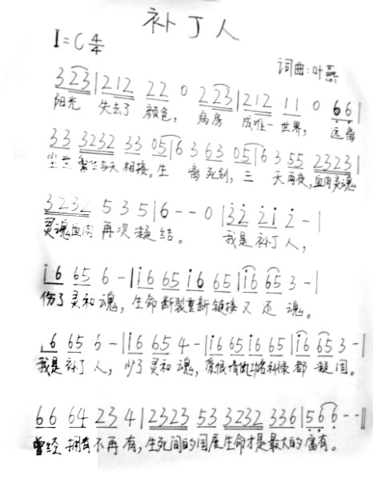 补丁人
1=C 4/4
词曲:叶
323|212 22 0 223|212 11 0 66|
阳光 失去了 颜色, 病房 成唯一世界, 这
33 3232 33 05|6 3 63 05|6 3 55 2323|
与天相接. 生 死别, 三 天两夜, 血肉灵魂
3232 5 3 5|6 - - 0|32 21 2 -|
灵魂血肉 再次凝结。 我是补丁人,
16 65 6 -|16 65 16 65|16 65 3 -|
伤了灵和魂, 生命断裂重新链接又还魂。
16 65 6 -|16 65 4 -|16 65 16 65|16 65 3 -|
我是补丁人, 少了灵和魂, 都凝固。
66 64 23 4|2323 53 3232 336|566 - -||
曾经拥有不再有, 生死间的 生命才是最大的富有。